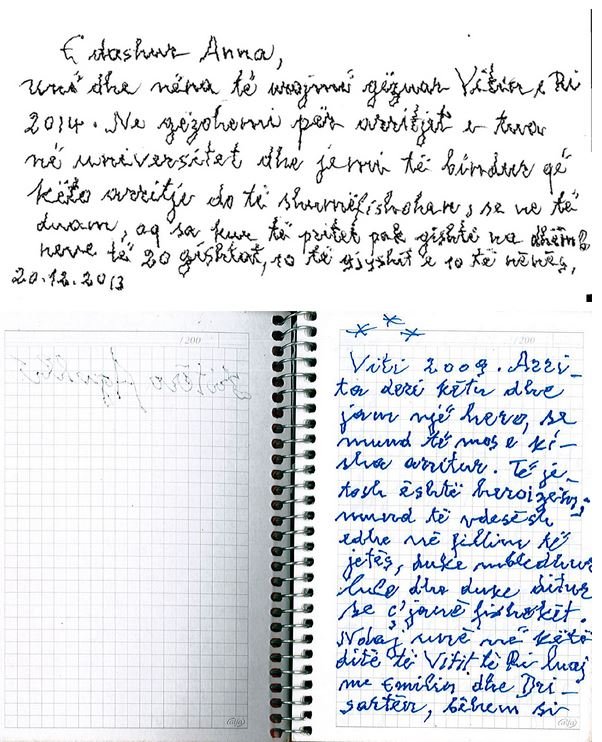 E dashur Anna,
unë dhe nëna të urojmë gëzuar Vitin e Ri
2014. Ne gëzohemi për arritjet e tua
në universitet dhe jemi të bindur që
këto arritje do të shumëfishohen, se ne të
duam, aq sa kur të pritet pak gishti na dhëmb
neve të 20 gishtat, 10 të gjyshit e 10 të nënës,
20.12.2013
/200
/200
Viti 2009. Arri-
ta deri këtu dhe
jam një hero, se
mund të mos e ki-
sha arritur. Të je-
tosh është heroizëm;
mund të vdesësh
edhe në fillim të
jetës, duke mbledhur
lule dhe duke ditur
se ç'janë fishekët.
Ndaj unë në këto
ditë të Vitit të Ri luaj
me Emilin dhe Dri-
sartën, bëhem si